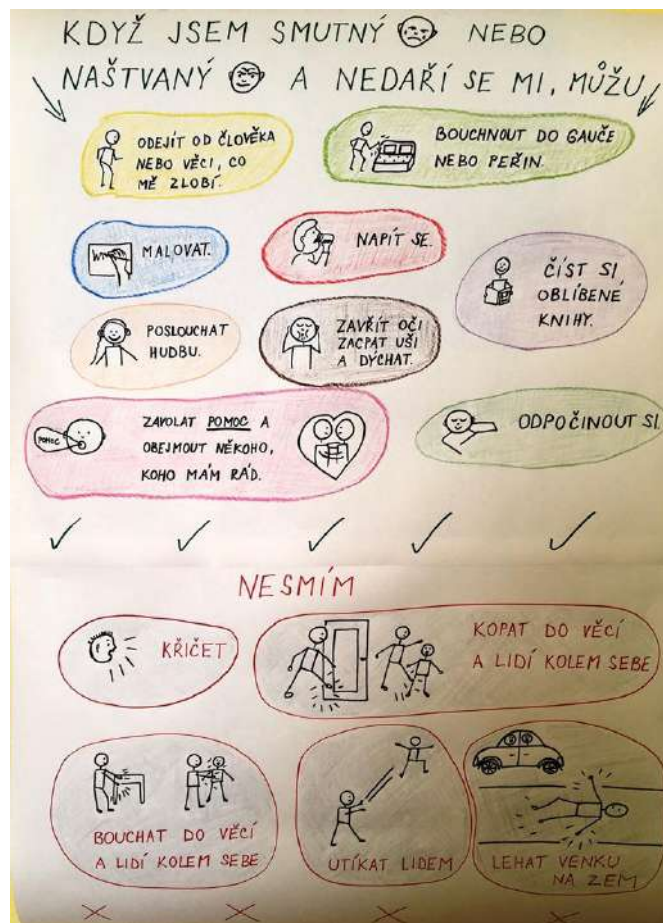 KDYŽ JSEM SMUTNÝ NEBO
NAŠTVANÝ A NEDAŘÍ SE MI, MŮŽU
ODEJÍT OD ČLOVĚKA
NEBO VĚCI, CO
MĚ ZLOBÍ.
BOUCHNOUT DO GAUČE
NEBO PEŘIN.
MALOVAT.
NAPÍT SE.
ČÍST SI
OBLÍBENÉ
KNIHY.
POSLOUCHAT
HUDBU.
ZAVŘÍT OČI
ZACPAT UŠI
A DÝCHAT.
POMOC
ZAVOLAT POMOC A
OBEJMOUT NĚKOHO,
KOHO MÁM RÁD.
ODPOČINOUT SI.
NESMÍM
KŘIČET
KOPAT DO VĚCÍ
A LIDÍ KOLEM SEBE
BOUCHAT DO VĚCÍ
A LIDÍ KOLEM SEBE
UTÍKAT LIDEM
LEHAT VENKU
NA ZEM